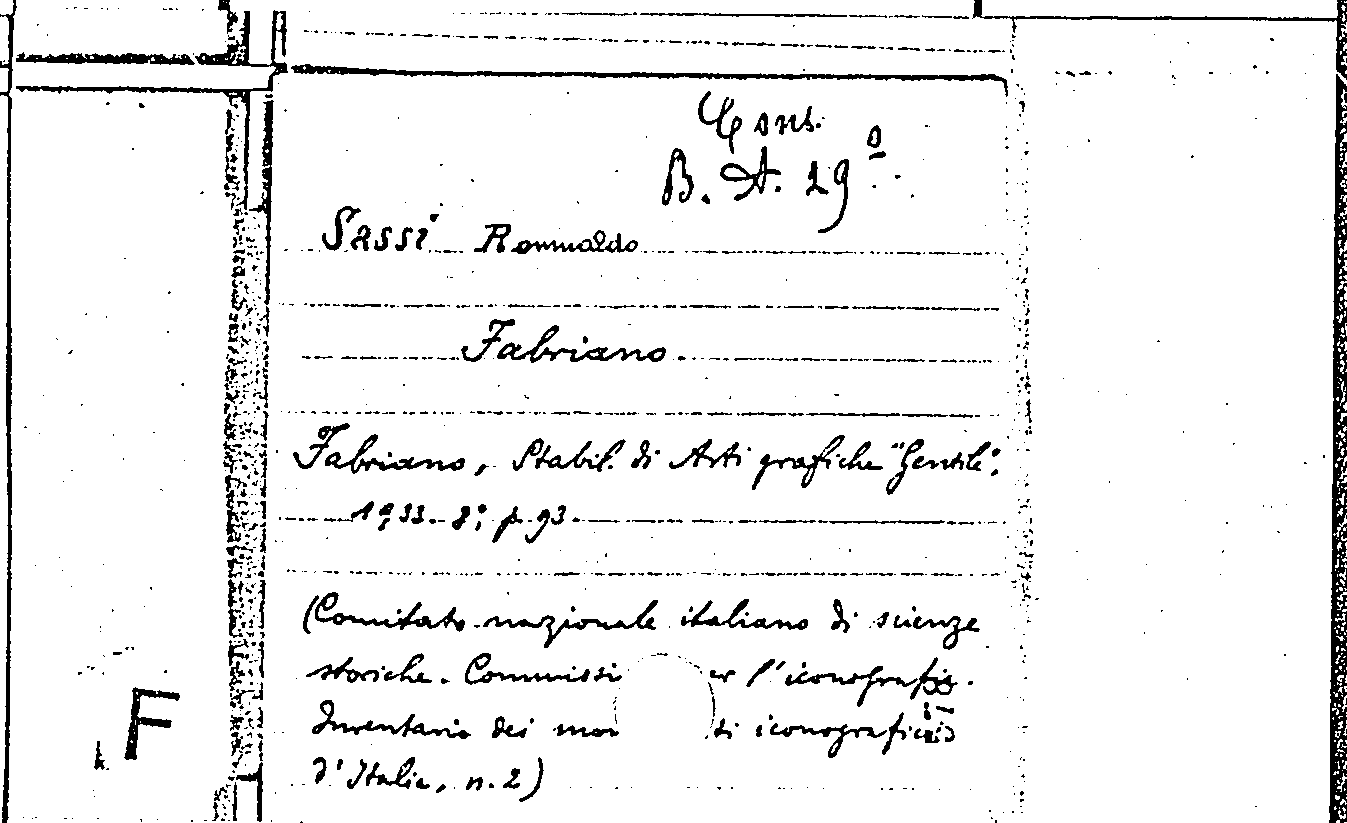 Cons.
B. A. 29º.
Sassi Romualdo
Fabriano.
Fabriano, Stabil. di Arti grafiche "Gentile",
1933. 8°, p. 93.
(Comitato nazionale italiano di scienze
storiche. Commissi er l'iconografia.
Inventario dei mon ti iconografici
d'Italia, n. 2)
F